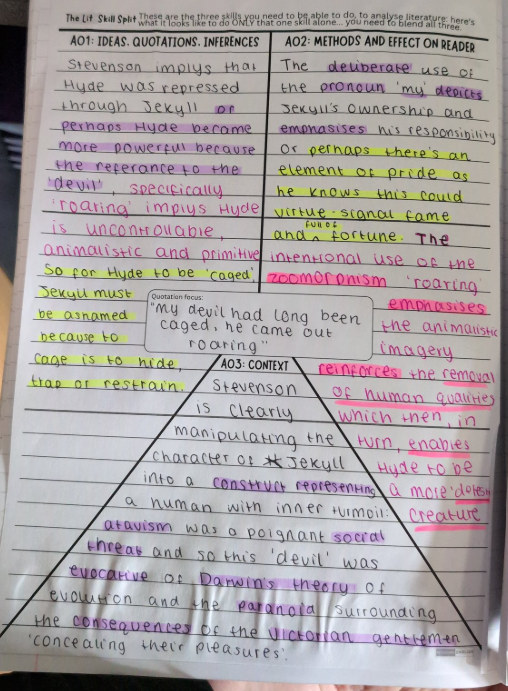 The Lit. Skill Split These are the three skills you need to be able to do, to analyse literature: here's
what it looks like to do ONLY that one skill alone... you need to blend all three.
AO1: IDEAS. QUOTATIONS. INFERENCES
Stevenson implys that
Hyde was repressed
through Jekyll or
perhaps Hyde became
more powerful because
the referance to the
'devil', specifically
'roaring' implys Hyde
is uncontrollable,
animalistic and primitive
So for Hyde to be 'caged',
Jekyll must
be ashamed
because to
cage is to hide,
trap or restrain.
AO2: METHODS AND EFFECT ON READER
The deliberate use of
the pronoun 'my' depicts
Jekyll's ownership and
emphasises his responsibility
or perhaps there's an
element of pride as
he knows this could
virtue-signal fame
and full of fortune. The
intentional use of the
zoomorphism 'roaring'
emphasises
the animalistic
imagery
reinforces the removal
of human qualities
which then, in
turn, enables
Hyde to be
a more 
creature
Quotation focus:
"My devil had long been
caged, he came out
roaring"
AO3: CONTEXT
Stevenson
is clearly
manipulating the
character of Jekyll
into a construct representing
a human with inner turmoil:
atavism was a poignant social
threat and so this 'devil' was
evocative of Darwin's theory of
evolution and the paranoia surrounding
the consequences of the Victorian gentlemen
'concealing their pleasures'.